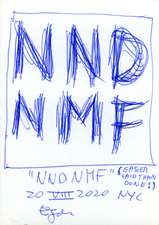 NND
NMF
"NNDNMF"
(EASIER SAID THAN DONE!)
20 VIII 2020 NYC